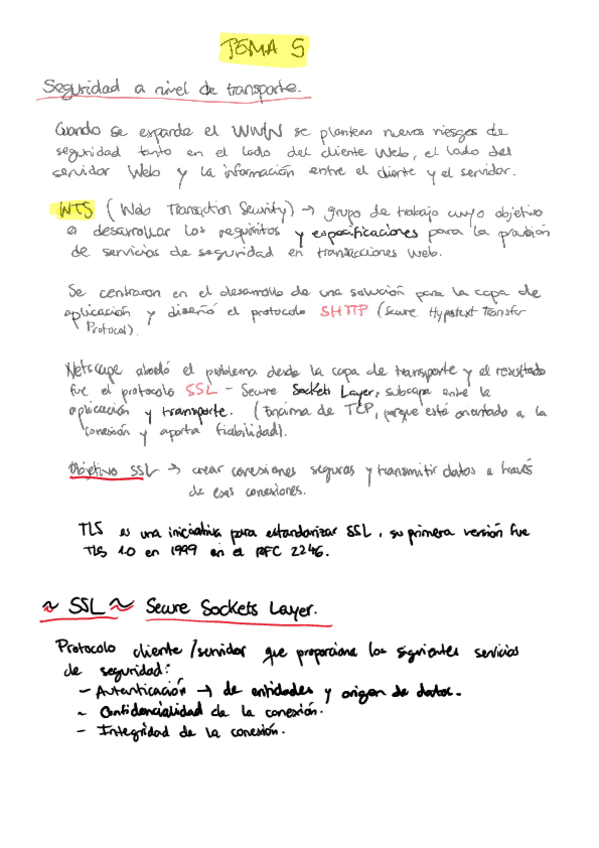 TEMA 5
Seguridad a nivel de transporte.
Cuando se expande el WWW se plantean nuevos riesgos de
seguridad tanto en el lado del cliente Web, el lado del
servidor Web y la información entre el cliente y el servidor.
WTS (Web Transaction Security) → grupo de trabajo cuyo objetivo
es desarrollar los requisitos y especificaciones para la provisión
de servicios de seguridad en transacciones web.
Se centraron en el desarrollo de una solución para la capa de
aplicación y diseñó el protocolo SHTTP (Secure Hypertext Transfer
Protocol).
Netscape abordó el problema desde la capa de transporte y el resultado
fue el protocolo SSL - Secure Sockets Layer, subcapa entre la
aplicación y transporte. (Encima de TCP, porque está orientado a la
conexión y aporta fiabilidad).
Objetivo SSL → crear conexiones seguras y transmitir datos a través
de esas conexiones.
TLS es una iniciativa para estandarizar SSL, su primera versión fue
TLS 1.0 en 1999 en el RFC 2246.
~ SSL ~ Secure Sockets Layer.
Protocolo cliente/servidor que proporciona los siguientes servicios
de seguridad:
- Autenticación → de entidades y origen de datos.
- Confidencialidad de la conexión.
- Integridad de la conexión.